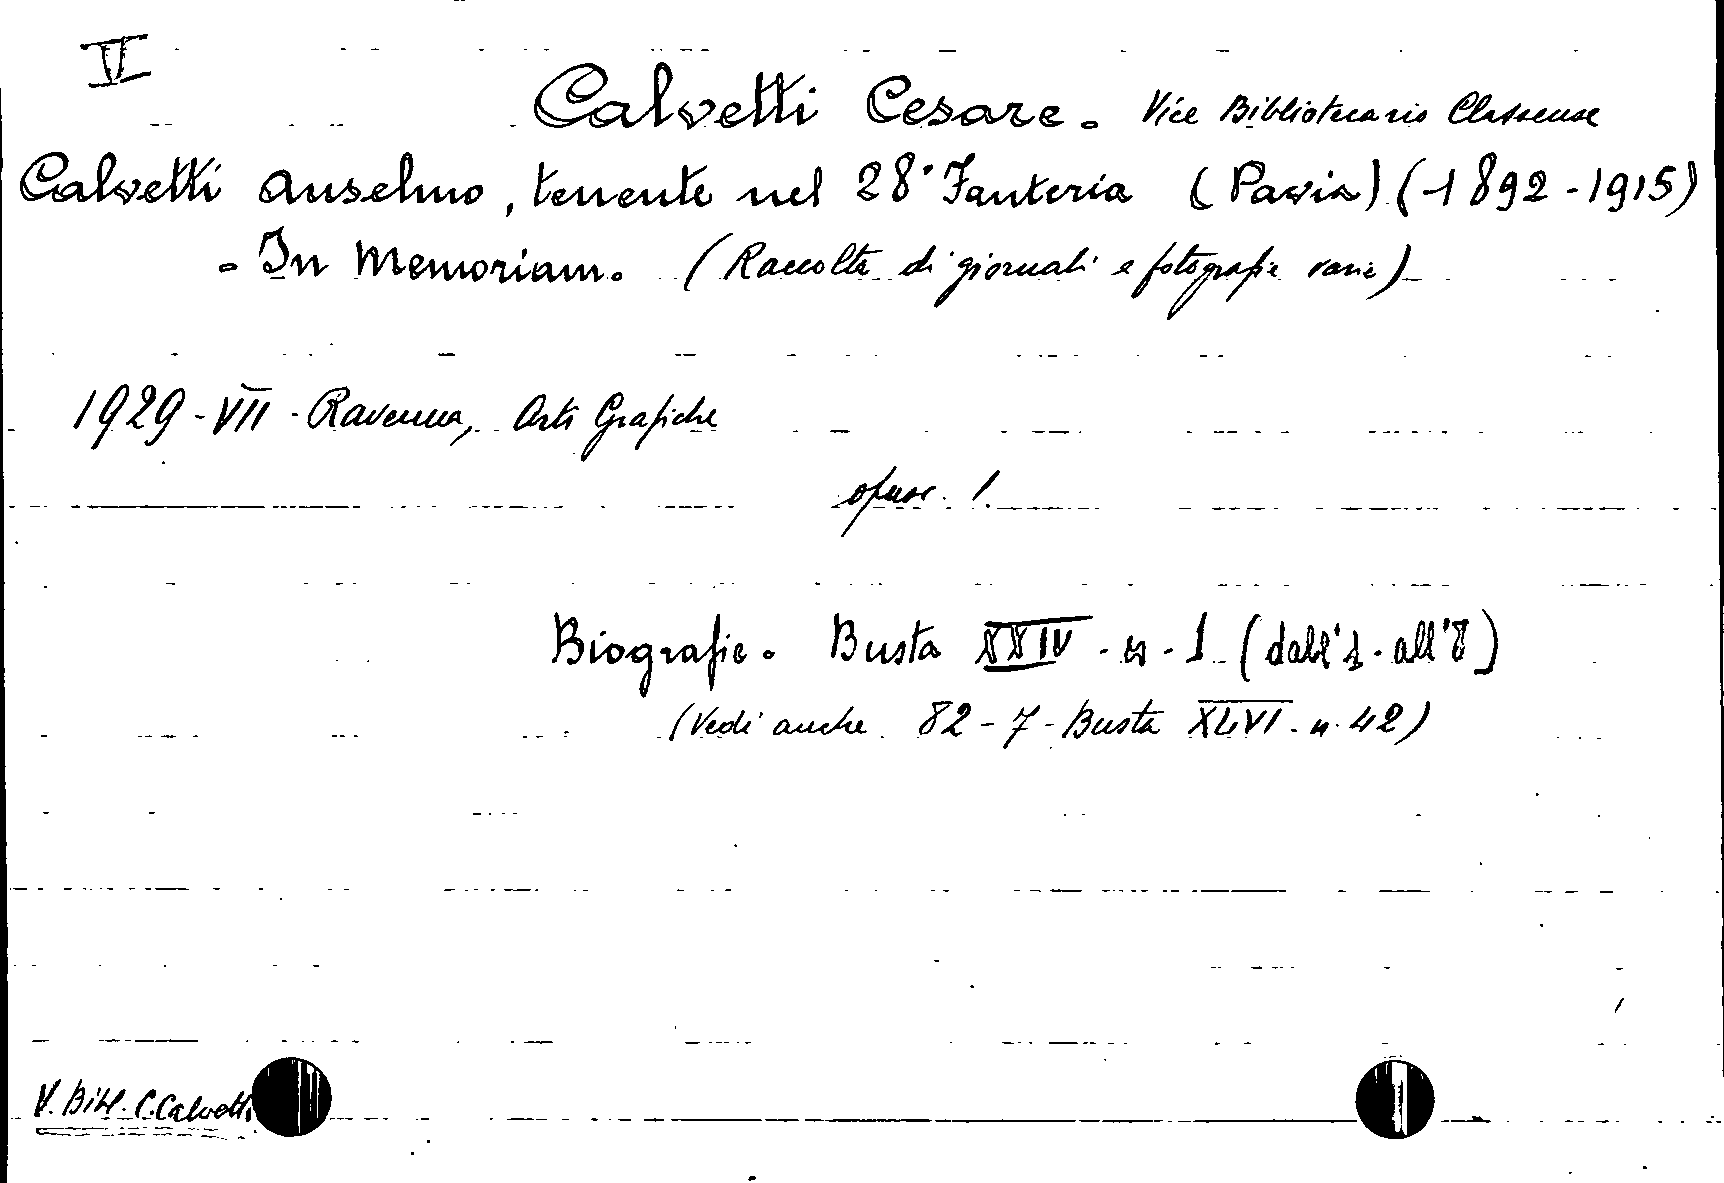 V
Calvetti Cesare. Vice Bibliotecario Classense
Calvetti Anselmo, tenente nel 28° Fanteria (Pavia) (1892-1915)
- In Memoriam. (Raccolta di giornali e fotografie varie)
1929-VII-Ravenna, Arti Grafiche
opusc. 1.
Biografie. Busta XXIV - n. 1 (dall'1. all'8)
(Vedi anche 82-7-Busta XLVI. n. 42)
V. Bibl. C. Calvetti